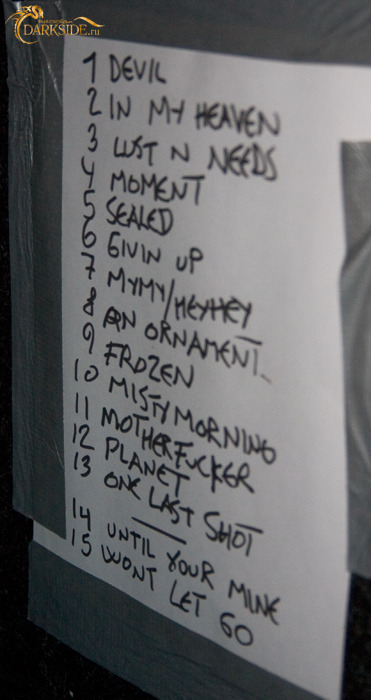 DARKSIDE.ru
1 DEVIL
2 IN MY HEAVEN
3 LUST N NEEDS
4 MOMENT
5 SEALED
6 GIVIN UP
7 MYMY/HEYHEY
8 AN ORNAMENT
9 FROZEN
10 MISTY MORNING
11 MOTHERFUCKER
12 PLANET
13 ONE LAST SHOT
14 UNTIL YOUR MINE
15 WONT LET GO